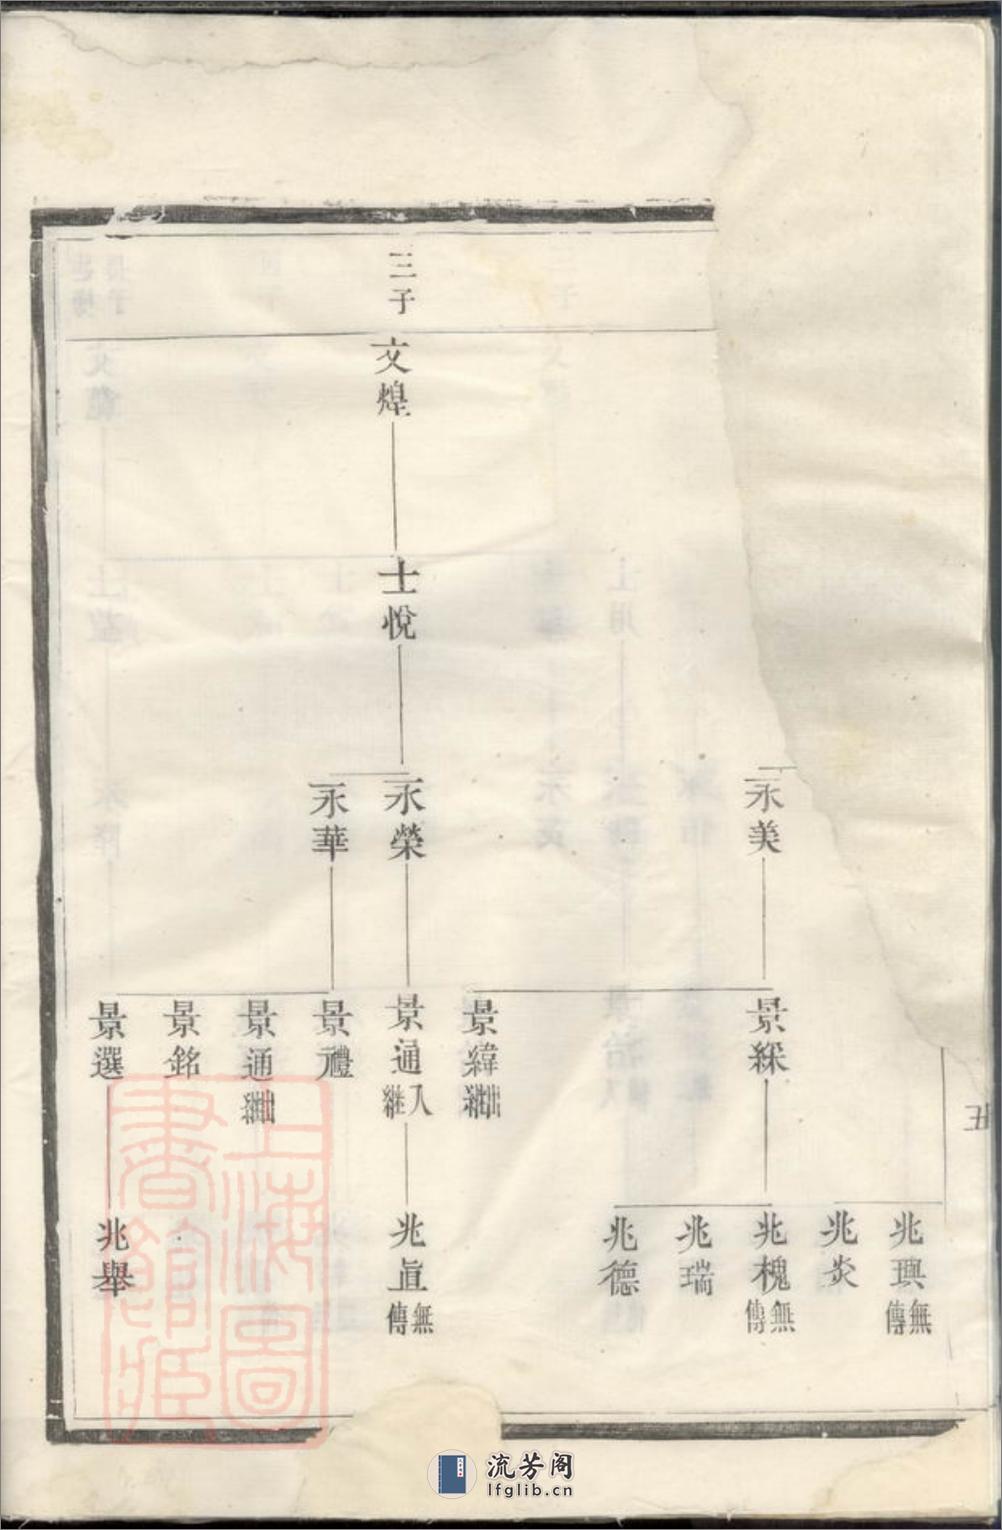 三子
文煌
士悅
永美
永榮
永華
景綵
景緯出繼
景通入繼
景禮
景通出繼
景銘
景選
兆璵無傳
兆炎
兆槐無傳
兆瑞
兆德
兆眞無傳
兆舉
五
上海圖書館藏
流芳阁
lfglib.cn